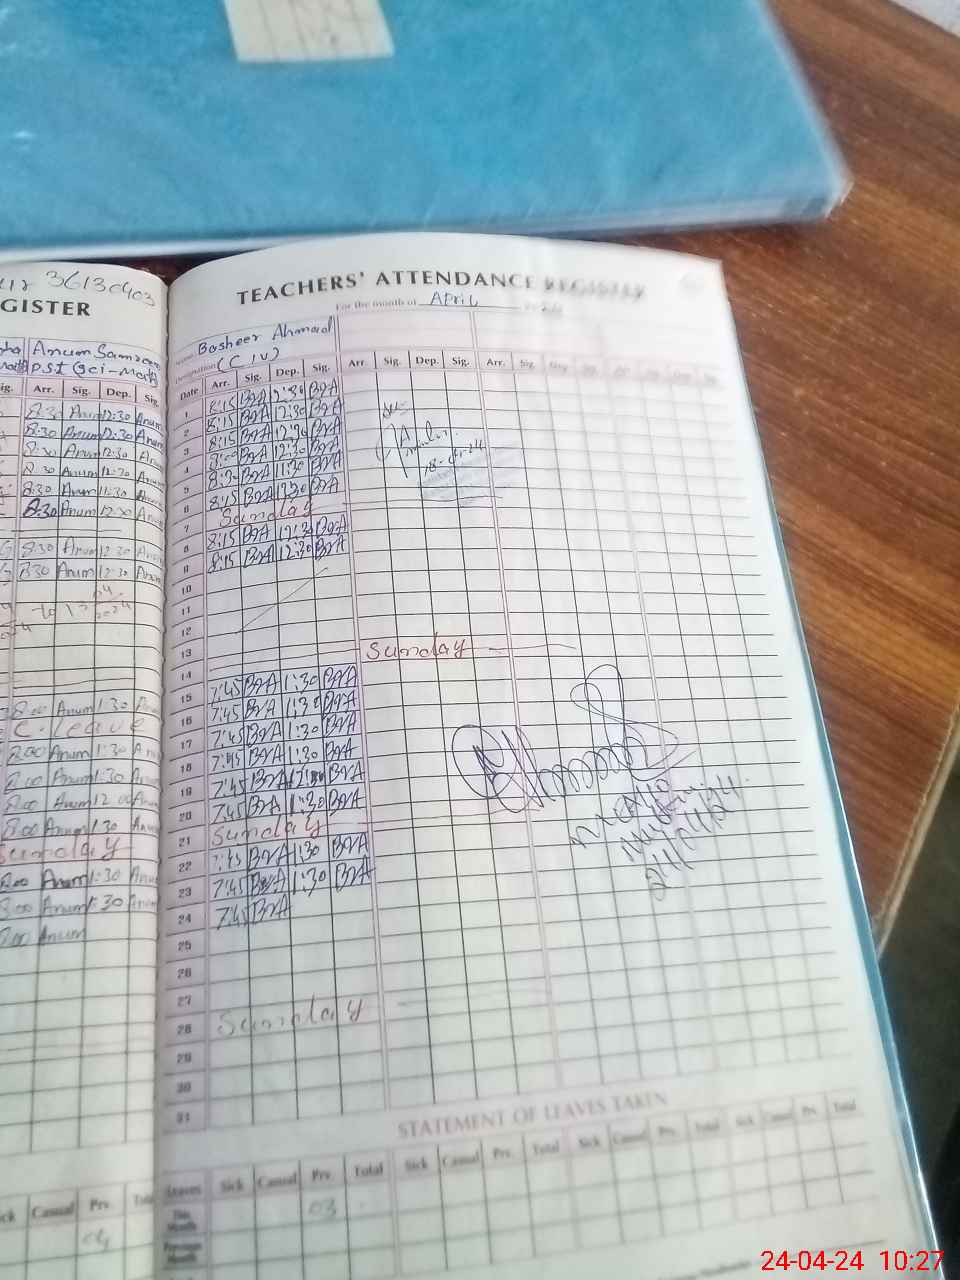 36130403
GISTER
Anum Samreen
PST (Sci-Math)
Sig. Arr. Sig. Dep. Sig.
8:30 Anum 12:30 Anum
8:30 Anum 12:30 Anum
8:30 Anum 12:30 Anum
8:30 Anum 12:30 Anum
8:30 Anum 11:30 Anum
8:30 Anum 12:30 Anum
8:30 Anum 12:30 Anum
8:30 Anum 12:30 Anum
8:00 Anum 1:30
C. Leave
8:00 Anum 1:30
8:00 Anum 1:30
8:00 Anum 12:00 Anum
8:00 Anum 1:30
Sunday
8:00 Anum 1:30
8:00 Anum 1:30
8:00 Anum
Casual Prv. Total
04
TEACHERS' ATTENDANCE REGISTER
For the month of April
Name Basheer Ahmad
Designation (C IV)
Date Arr. Sig. Dep. Sig. Arr. Sig. Dep. Sig. Arr. Sig.
1 8:15 BZA 12:30 BZA
2 8:15 BZA 12:30 BZA
3 8:15 BZA 12:30 BZA
4 8:00 BZA 12:30 BZA
5 8:30 BZA 11:30 BZA
6 8:15 BZA 12:30 BZA
7 Sunday
8 8:15 BZA 12:30 BZA
9 8:15 BZA 12:30 BZA
10
11
12
13
14 Sunday
15 7:45 BZA 1:30 BZA
16 7:45 BZA 1:30 BZA
17 7:45 BZA 1:30 BZA
18 7:45 BZA 1:30 BZA
19 7:45 BZA 12:00 BZA
20 7:45 BZA 1:30 BZA
21 Sunday
22 7:45 BZA 1:30 BZA
23 7:45 BZA 1:30 BZA
24 7:45 BZA
25
26
27
28 Sunday
29
30
31
18-04-24
24/04/24
STATEMENT OF LEAVES TAKEN
Leaves Sick Casual Prv. Total Sick Casual Prv. Total Sick Casual Prv. Total Sick Casual Prv. Total
This Month 03
Previous Month
24-04-24 10:27